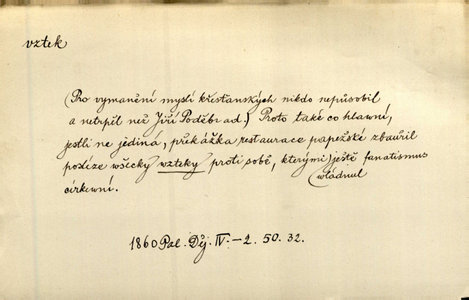 vztek
(Pro vymanění myslí křesťanských nikdo nepůsobil
a netrpěl než Jiří Poděbrad.) Proto také co hlavní,
jestli ne jediná, překážka restaurace papežské zbouřil
později všecky vzteky proti sobě, kterými ještě fanatismus
církevní. vládnul
1860 Pal. Děj. IV.–2. 50. 32.